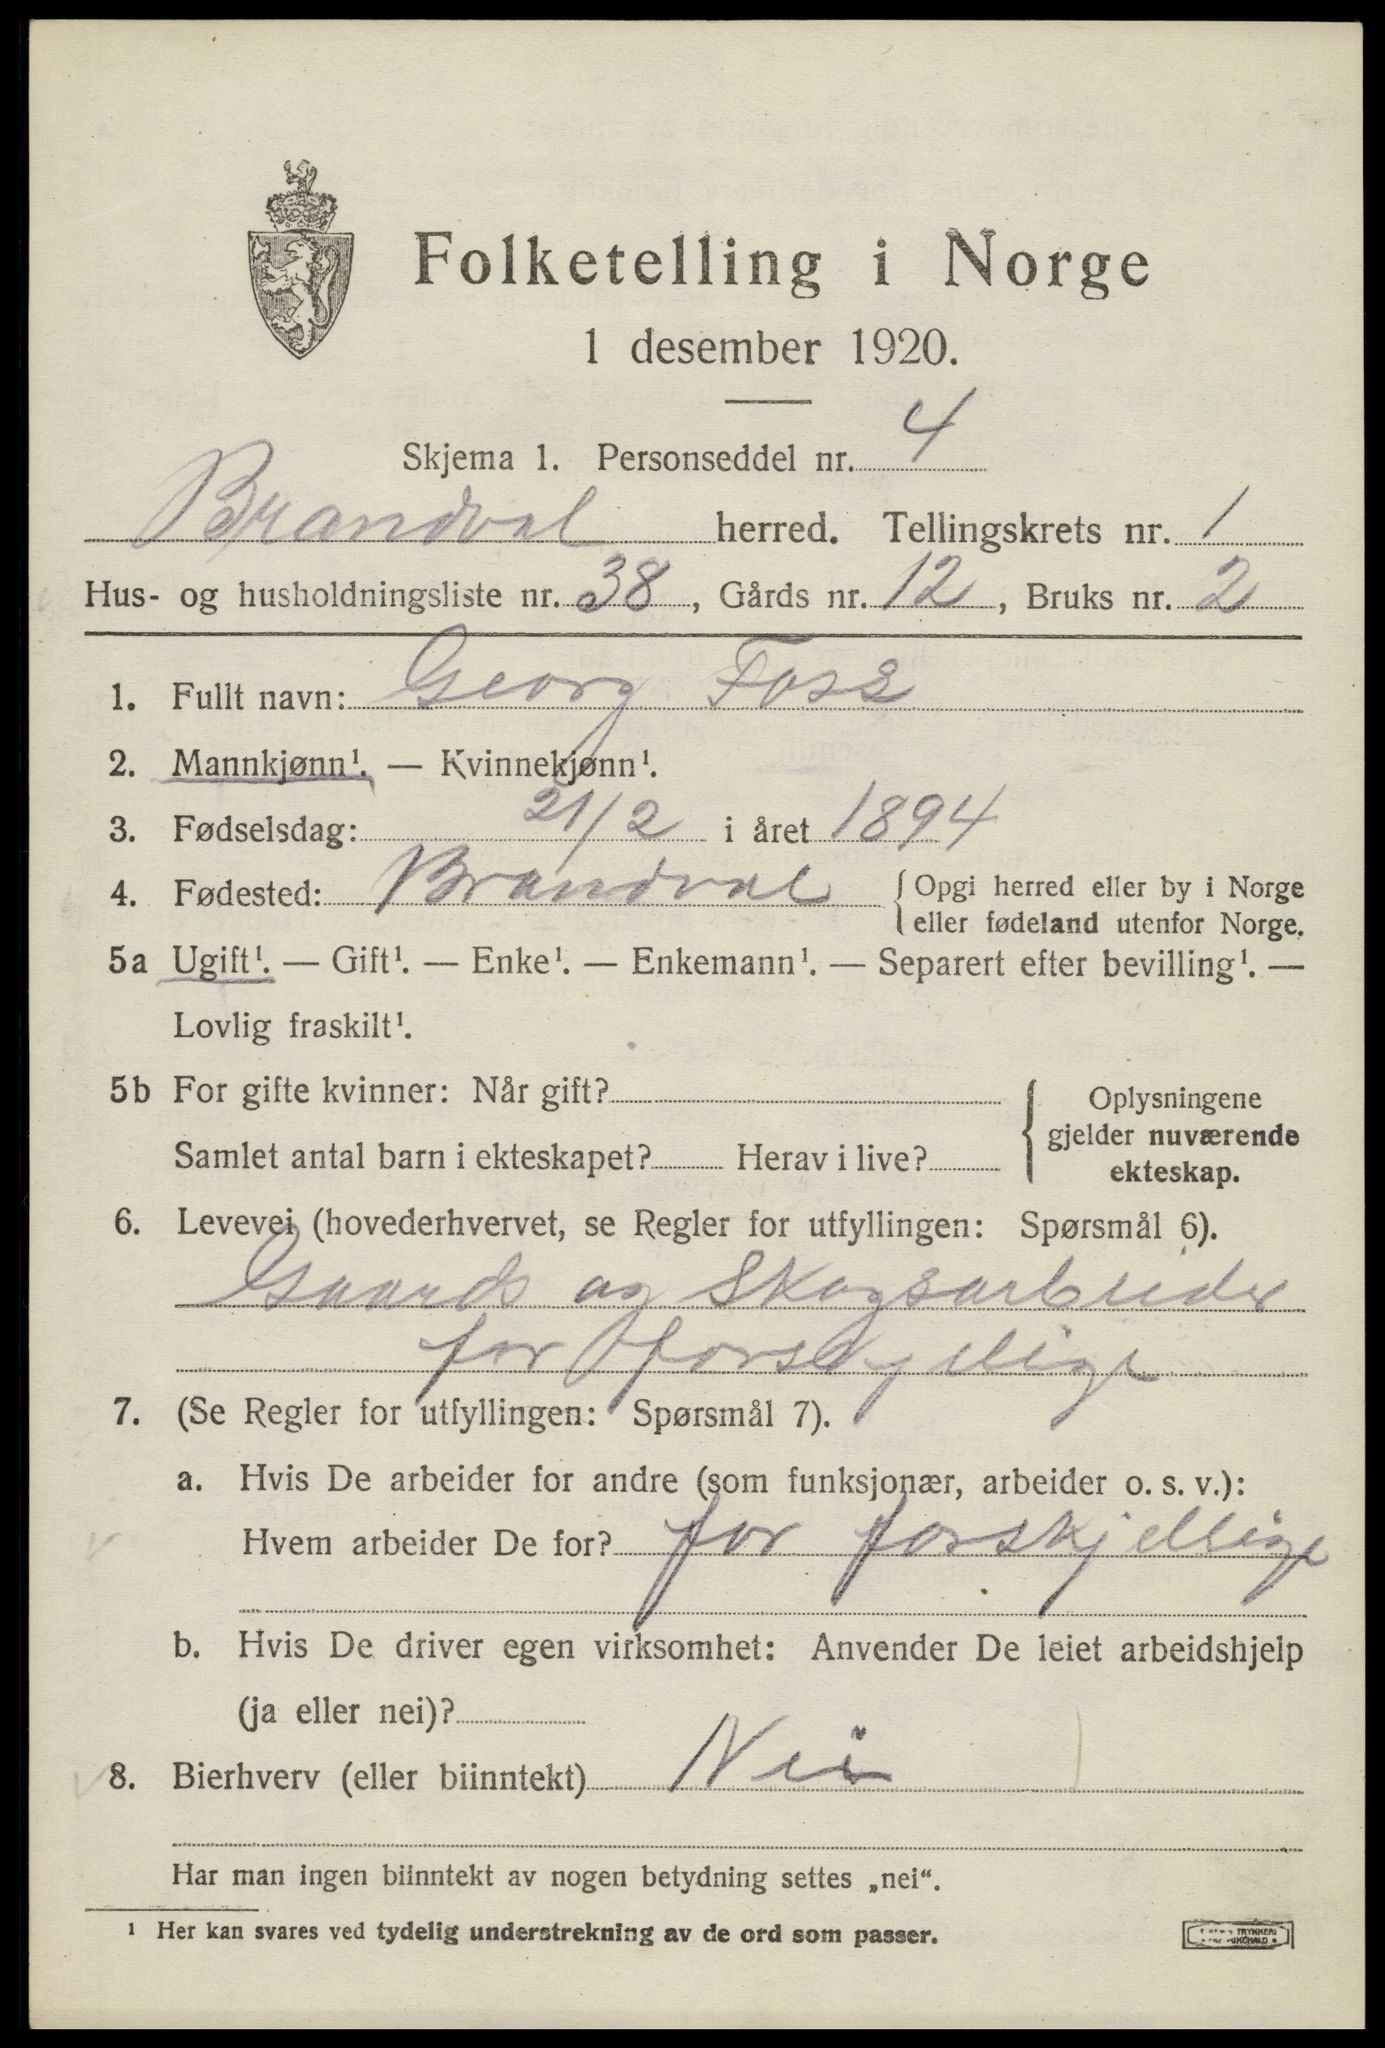 Folketelling i Norge
1 desember 1920.
Skjema 1. Personseddel nr. 4
Brandval herred. Tellingskrets nr. 1
Hus- og husholdningsliste nr. 38, Gårds nr. 12, Bruks nr. 2
1. Fullt navn: Georg Foss
2. Mannkjønn¹. — Kvinnekjønn¹.
3. Fødselsdag: 21/2 i året 1894
4. Fødested: Brandval { Opgi herred eller by i Norge
eller fødeland utenfor Norge.
5a Ugift¹. — Gift¹. — Enke¹. — Enkemann¹. — Separert efter bevilling¹. —
Lovlig fraskilt¹.
5b For gifte kvinner: Når gift?
Samlet antal barn i ekteskapet? Herav i live?
{ Oplysningene
gjelder nuværende
ekteskap.
6. Levevei (hovederhvervet, se Regler for utfyllingen: Spørsmål 6).
Gaards og Skogsarbeider
for forskjellige
7. (Se Regler for utfyllingen: Spørsmål 7).
a. Hvis De arbeider for andre (som funksjonær, arbeider o. s. v.):
Hvem arbeider De for? for forskjellige
b. Hvis De driver egen virksomhet: Anvender De leiet arbeidshjelp
(ja eller nei)?
8. Bierhverv (eller biinntekt) Nei
Har man ingen biinntekt av nogen betydning settes „nei“.
¹ Her kan svares ved tydelig understrekning av de ord som passer.
TRYKKERI